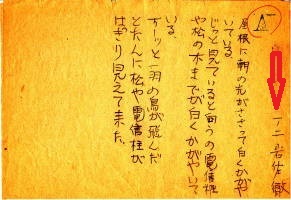 A
一ノ二 岩佐徹
屋根に朝の光がささって白くかがや
いている。
じっと見ていると向うの電信柱
や松の木までが白くかがやいて
いる。
すーっと一羽の鳥が飛んだ
とたんに松や電信柱が
はっきり見えて来た。